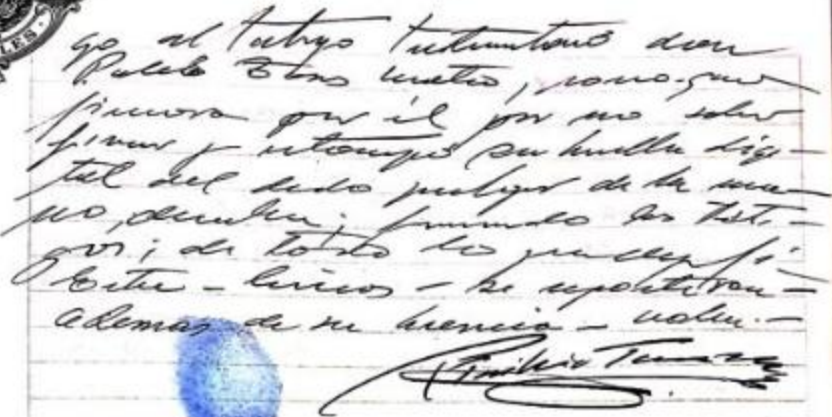 LES.
go al testigo instrumental don
Pablo                 , para que
firmara por él por no saber
firmar y estampó su huella digi-
tal del dedo pulgar de la ma-
no, derecha; firmando los testi-
gos; de todo lo que doy fé.
Entre - lineas - se repartiran -
ademas de su herencia - valen.-
Emilio